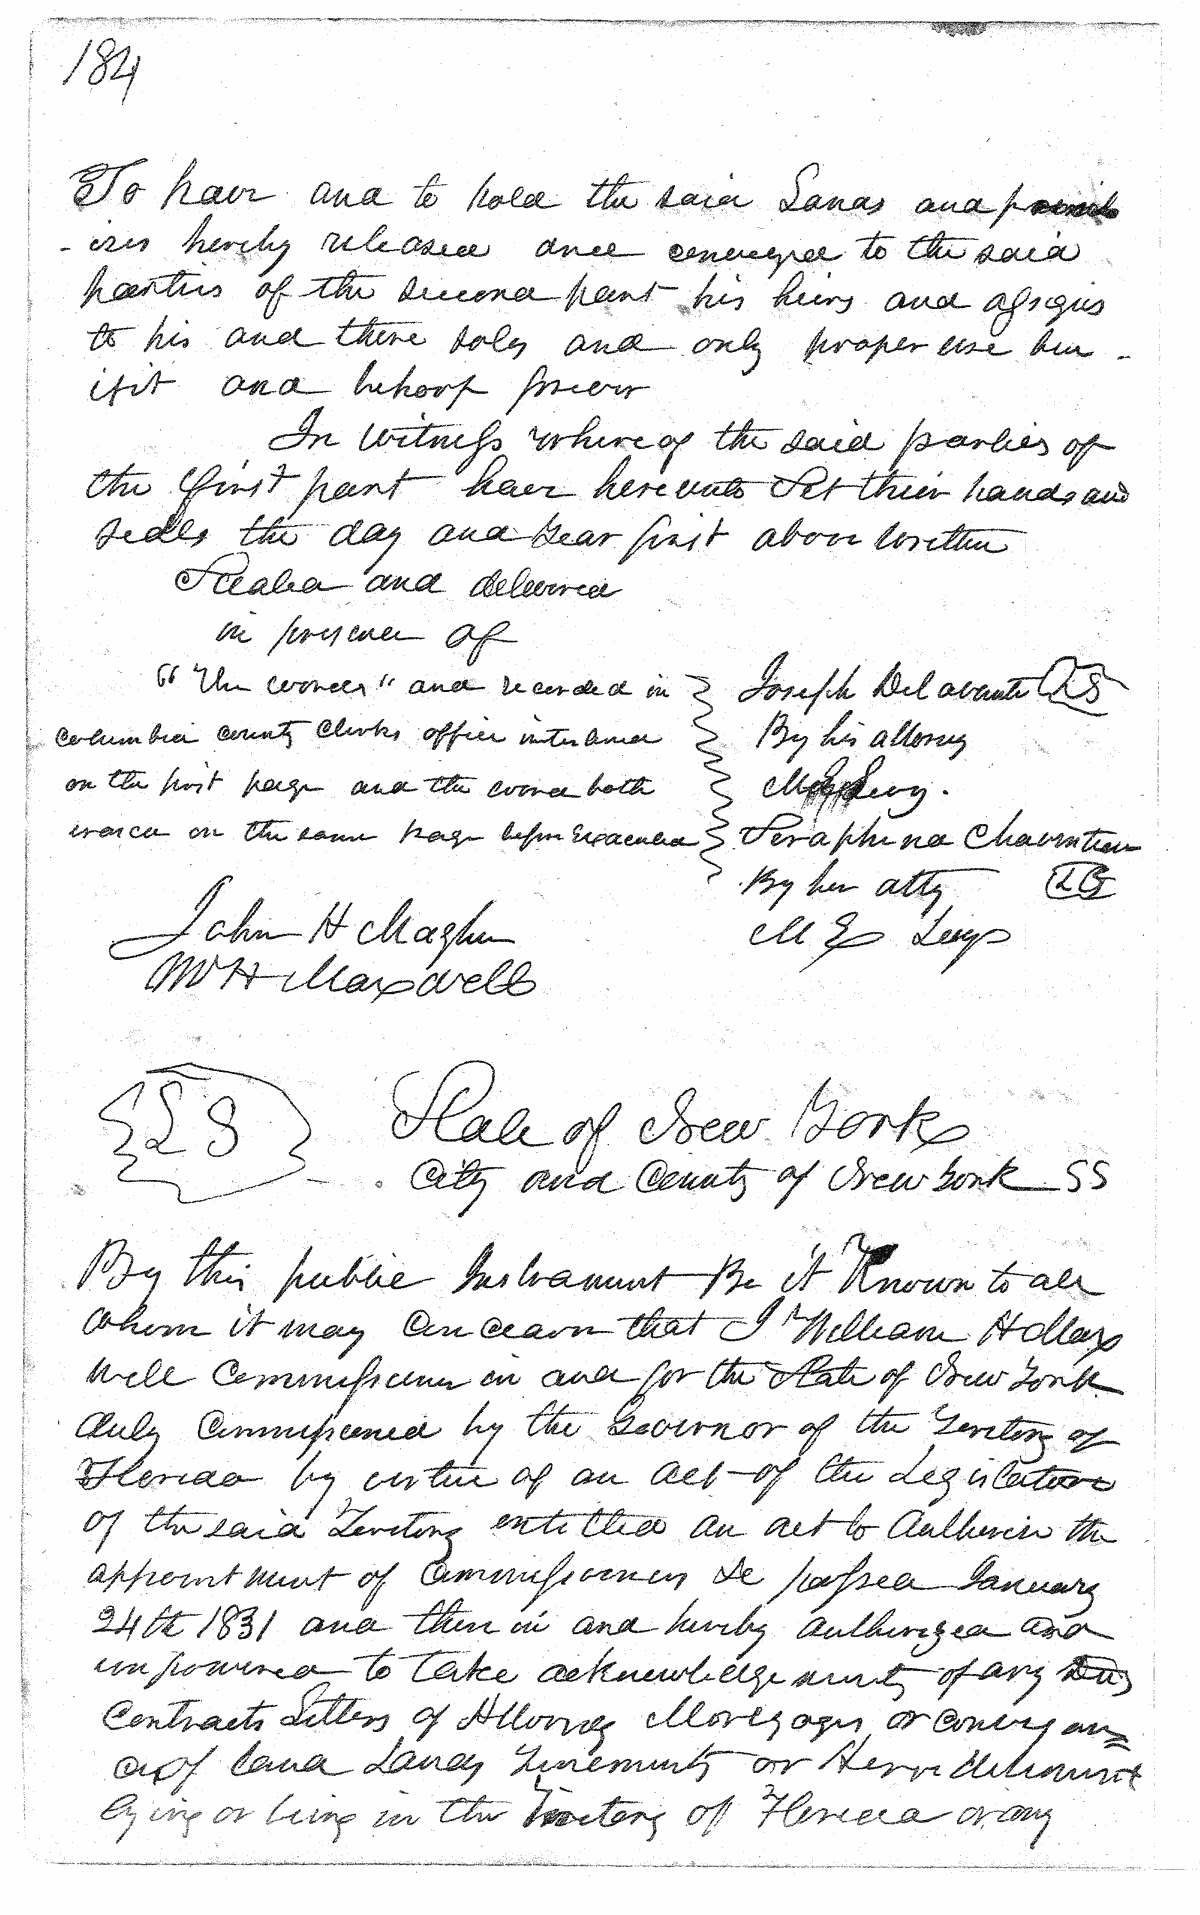 184
To have and to hold the said Lands and premis
- ises hereby released and conveyed to the said
parties of the second part his heirs and assigns
to his and there soley and only proper use ben -
ifit and behoof forever
In Witness whereof the said parties of
the first part have hereunto Set their hands and
seals the day and Year first above written
Sealed and delivered
in presence of
"The words" and recorded in
Columbia county Clerks office interlined
on the first page and the word both
erased on the same page before Executed
Joseph Delavante LS
By his attorney
M E Levy.
Seraphina Chauviteau
By her atty LS
M E Levy
John H Magher
Wm H Maxwell
LS
State of New York
City and County of New York SS
By this public Instrument Be it Known to all
whom it may Concearn that I William H Max
well Commissioner in and for the State of New York
duly Commissioned by the Governor of the Territory of
Florida by virtue of an act of the Legislature
of the said Territory entitled an act to Autherise the
appointment of Commissioners &c passed January
24th 1831 and there in and hereby autherized and
impowered to take acknowledgements of any Deeds
Contracts Letters of Attorney Mortgages or Conveyan=
ces of land Lands Tenements or Herreditament
lying or being in the Territory of Florida or any